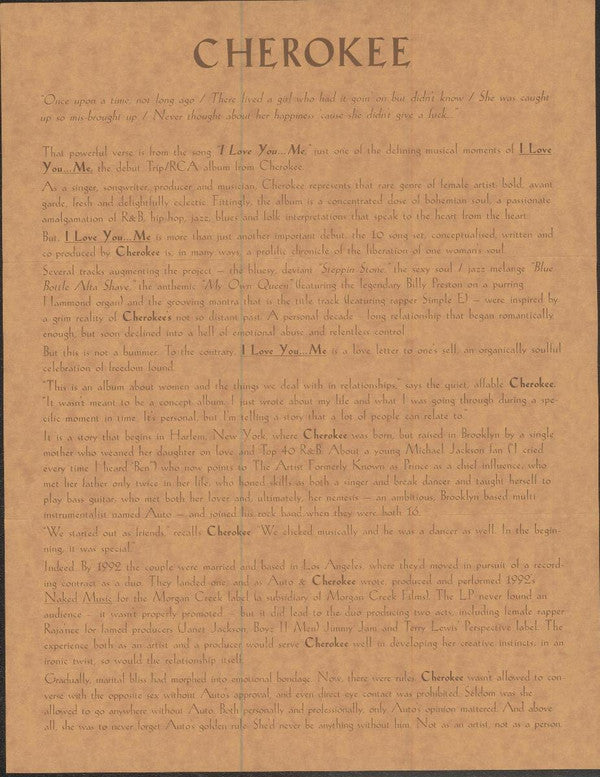 CHEROKEE
"Once upon a time, not long ago / There lived a girl who had it goin' on but didn't know / She was caught
up so mis-brought up / Never thought about her happiness cause she didn't give a fuck..."
That powerful verse is from the song "I Love You...Me," just one of the defining musical moments of I Love
You...Me, the debut Trip/RCA album from Cherokee.
As a singer, songwriter, producer and musician, Cherokee represents that rare genre of female artist: bold, avant
garde, fresh and delightfully eclectic. Fittingly, the album is a concentrated dose of bohemian soul, a passionate
amalgamation of R&B, hip-hop, jazz, blues and folk interpretations that speak to the heart from the heart.
But, I Love You...Me is more than just another important debut, the 10 song set, conceptualised, written and
co produced by Cherokee is, in many ways, a prolific chronicle of the liberation of one woman's soul.
Several tracks augmenting the project — the bluesy, deviant "Steppin Stone," the sexy soul / jazz melange "Blue
Bottle Alta Shave," the anthemic "My Own Queen" (featuring the legendary Billy Preston on a purring
Hammond organ) and the grooving mantra that is the title track (featuring rapper Simple E) — were inspired by
a grim reality of Cherokee's not so distant past. A personal decade - long relationship that began romantically
enough, but soon declined into a hell of emotional abuse and relentless control.
But this is not a bummer. To the contrary, I Love You...Me is a love letter to one's self, an organically soulful
celebration of freedom found.
"This is an album about women and the things we deal with in relationships," says the quiet, affable Cherokee.
"It wasn't meant to be a concept album. I just wrote about my life and what I was going through during a spe-
cific moment in time. It's personal, but I'm telling a story that a lot of people can relate to."
It is a story that begins in Harlem, New York, where Cherokee was born, but raised in Brooklyn by a single
mother who weaned her daughter on love and Top 40 R&B. About a young Michael Jackson fan ("I cried
every time I heard 'Ben'") who now points to The Artist Formerly Known as Prince as a chief influence, who
met her father only twice in her life, who honed skills as both a singer and break dancer and taught herself to
play bass guitar, who met both her lover and, ultimately, her nemesis — an ambitious, Brooklyn based multi
instrumentalist named Auto — and joined his rock band when they were both 16.
"We started out as friends," recalls Cherokee. "We clicked musically and he was a dancer as well. In the begin-
ning, it was special."
Indeed. By 1992 the couple were married and based in Los Angeles, where they'd moved in pursuit of a record-
ing contract as a duo. They landed one, and as Auto & Cherokee wrote, produced and performed 1992's
Naked Music for the Morgan Creek label (a subsidiary of Morgan Creek Films). The LP never found an
audience — it wasn't properly promoted — but it did lead to the duo producing two acts, including female rapper
Rajanee for famed producers (Janet Jackson, Boyz II Men) Jimmy Jam and Terry Lewis' Perspective label. The
experience both as an artist and a producer would serve Cherokee well in developing her creative instincts, in an
ironic twist, so would the relationship itself.
Gradually, marital bliss had morphed into emotional bondage. Now, there were rules. Cherokee wasn't allowed to con-
verse with the opposite sex without Auto's approval, and even direct eye contact was prohibited. Seldom was she
allowed to go anywhere without Auto. Both personally and professionally, only Auto's opinion mattered. And above
all, she was to never forget Auto's golden rule: She'd never be anything without him. Not as an artist, not as a person.